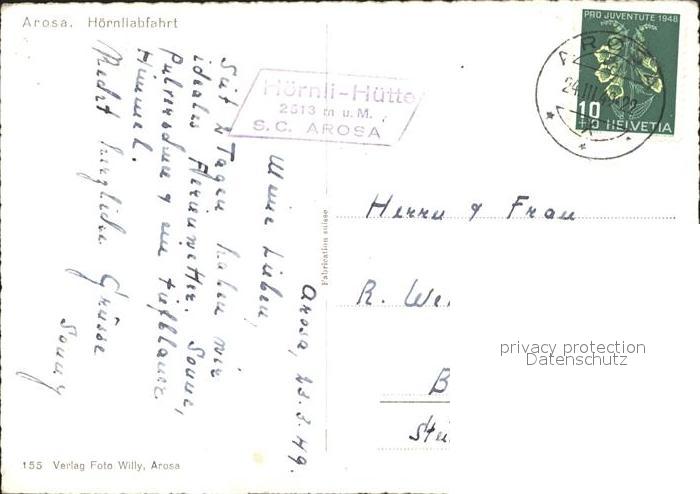 Arosa. Hörnliabfahrt
PRO JUVENTUTE 1948
10
+10 HELVETIA
AROSA
24.III.49
Hörnli-Hütte
2513 m u. M.
S. C. AROSA
Arosa, 23.3.49.
Meine Lieben,
Seit 2 Tagen haben wir
ideales Ferienwetter. Sonne,
Pulverschnee & ein tiefblauer
Himmel.
Recht herzliche Grüsse
Sonny
Fabrication suisse
Herrn & Frau
R. We
B
privacy protection
Datenschutz
155 Verlag Foto Willy, Arosa